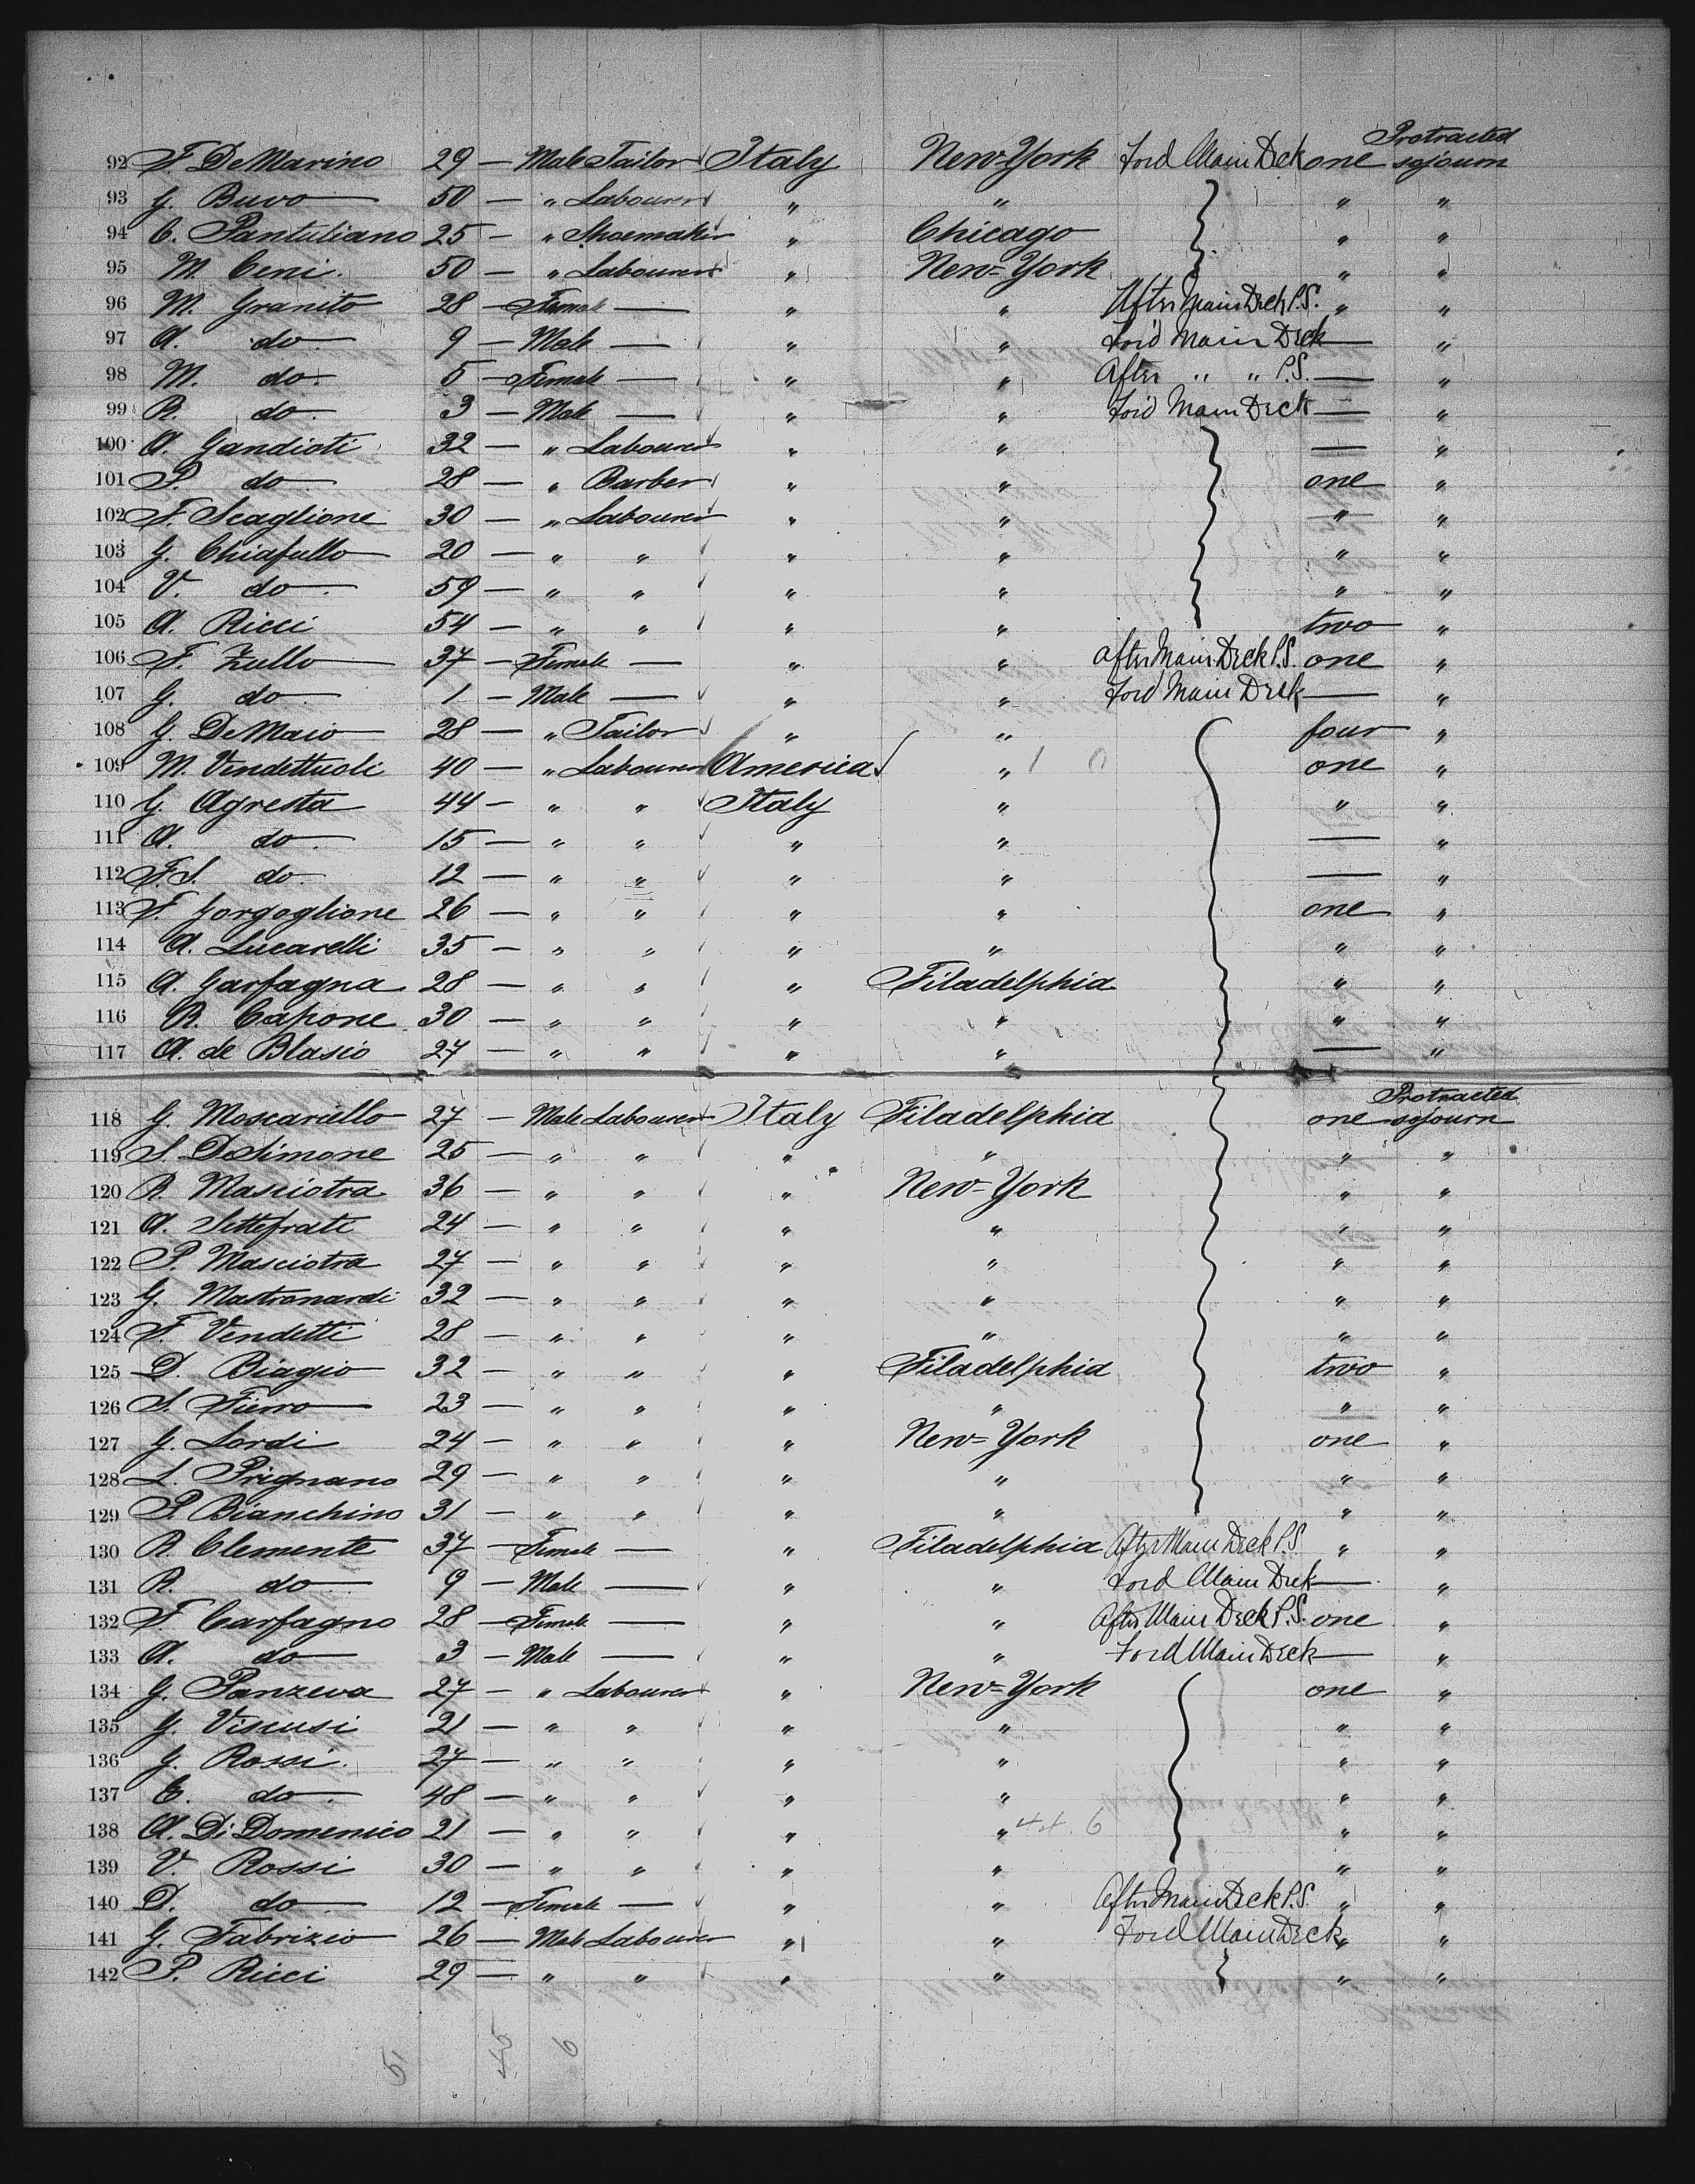 Protracted
92 F. DeMarino 29 — Male Tailor Italy New-York Ford Main Dek one sojourn
93 G. Buvo 50 — " Labourer " " " "
94 C. Pantuliano 25 — " Shoemaker " Chicago " "
95 M. Ceni. 50 — " Labourer " New=York " "
96 M. Granito 28 — Female — " " After Main Deck P.S. " "
97 A. do. 9 — Male — " " Ford Main Deck — "
98 M. do. 5 — Female — " " After " " P.S. — "
99 R. do. 3 — Male — " " Ford Main Deck — "
100 A. Gandioti 32 — " Labourer " " — "
101 P. do. 28 — " Barber " " one "
102 F. Scaglione 30 — " Labourer " " " "
103 G. Chiafullo 20 — " " " " " "
104 V. do. 59 — " " " " " "
105 A. Ricci 54 — " " " " two "
106 F. Zullo 37 — Female — " " After Main Deck P.S. one "
107 G. do. 1 — Male — " " Ford Main Deck — "
108 G. DeMaio 28 — " Tailor " " four "
109 M. Vendettuoli 40 — " Labourer America " 1 0 one "
110 G. Agresta 44 — " " Italy " " "
111 A. do. 15 — " " " " — "
112 F.S. do. 12 — " " " " — "
113 F. Gorgoglione 26 — " " " " one "
114 A. Lucarelli 35 — " " " " " "
115 A. Garfagna 28 — " " " Filadelphia " "
116 R. Capone 30 — " " " " " "
117 A. de Blasio 27 — " " " " — "
Protracted
118 G. Moscariello 27 — Male Labourer Italy Filadelphia one sojourn
119 S. DeSimone 25 — " " " " " "
120 R. Masciotra 36 — " " " New=York " "
121 A. Settefrati 24 — " " " " " "
122 P. Masciotra 27 — " " " " " "
123 G. Mastronardi 32 — " " " " " "
124 F. Vendetti 28 — " " " " " "
125 D. Biagio 32 — " " " Filadelphia two "
126 S. Fierro 23 — " " " " " "
127 G. Lordi 24 — " " " New=York one "
128 L. Prignano 29 — " " " " " "
129 P. Bianchino 31 — " " " " " "
130 R. Clemente 37 — Female — " Filadelphia After Main Deck P.S. " "
131 R. do. 9 — Male — " " Ford Main Deck — "
132 F. Carfagno 28 — Female — " " After Main Deck P.S. one "
133 A. do 3 — Male — " " Ford Main Deck — "
134 G. Panzeva 27 — " Labourer " New=York one "
135 G. Viscusi 21 — " " " " " "
136 G. Rossi. 27 — " " " " " "
137 E. do. 48 — " " " " " "
138 A. Di Domenico 21 — " " " " 44.6 " "
139 V. Rossi 30 — " " " " " "
140 D. do. 12 — Female — " " After Main Deck P.S. " "
141 G. Fabrizio 26 — Male Labourer " " Ford Main Deck " "
142 P. Ricci 29 — " " " " " "
5 45 6